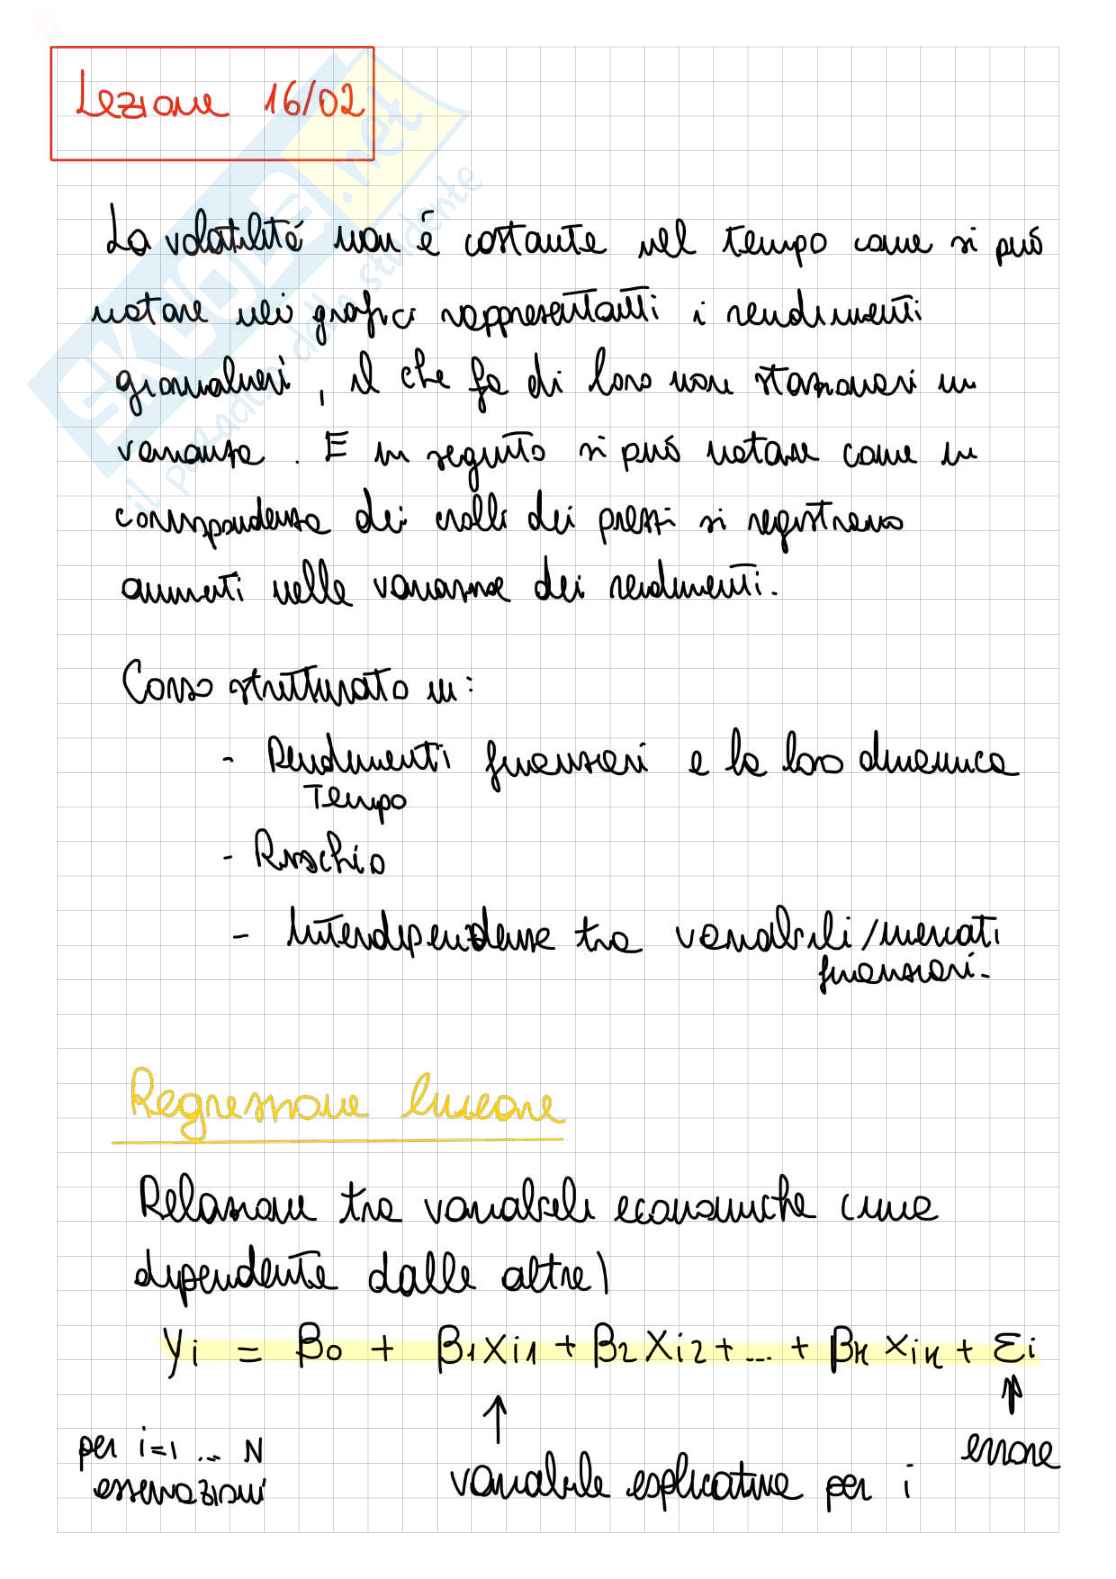 Lezione 16/02
SKUOLA.net
il paradiso dello studente
La volatilità non è costante nel tempo come si può
notare nei grafici rappresentanti i rendimenti
giornalieri, il che fa di loro non stazionari in
varianza. E in seguito si può notare come in
corrispondenza dei crolli dei prezzi si registrano
aumenti nelle varianze dei rendimenti.
Corso strutturato in:
- Rendimenti finanziari e la loro dinamica
Tempo
- Rischio
- Interdipendenze tra variabili/mercati
finanziari.
Regressione lineare
Relazione tra variabili economiche (una
dipendente dalle altre)
yi = β0 + β1xi1 + β2xi2 + ... + βkxik + εi
↑ ↑
per i=1 ... N errore
osservazioni variabile esplicativa per i